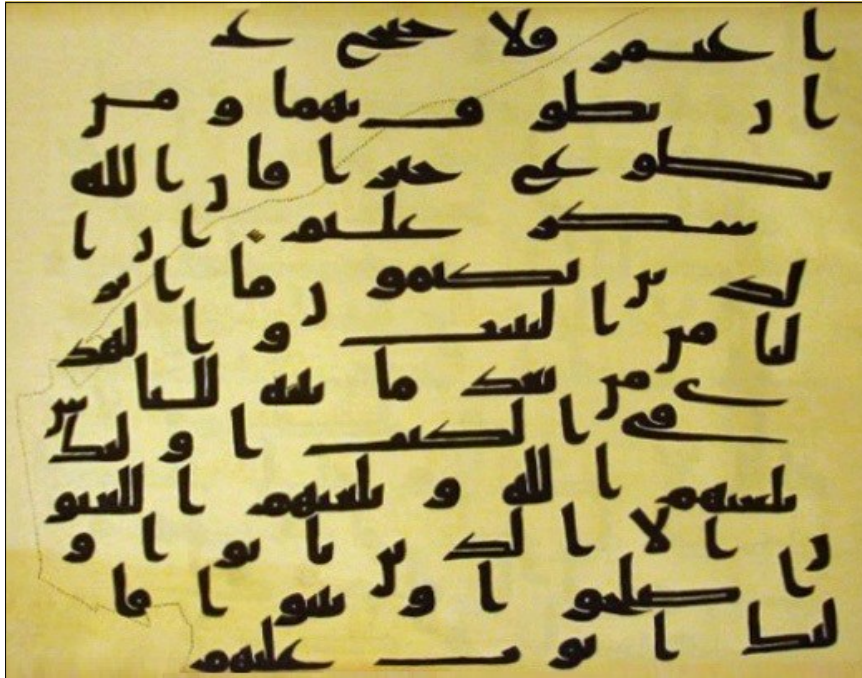 اعتمر فلا جنح علـ
ان يطوف بهما ومن
تطوع خيرا فان الله
شكر عليم ان ا
لذين يكتمون ما انز
لنا من البينت والهد
ى من بعد ما بينه للناس
في الكتب اولئك
يلعنهم الله ويلعنهم اللعنو
ن الا الذين تابوا و
اصلحوا وبينوا فا
ولئك اتوب عليهم